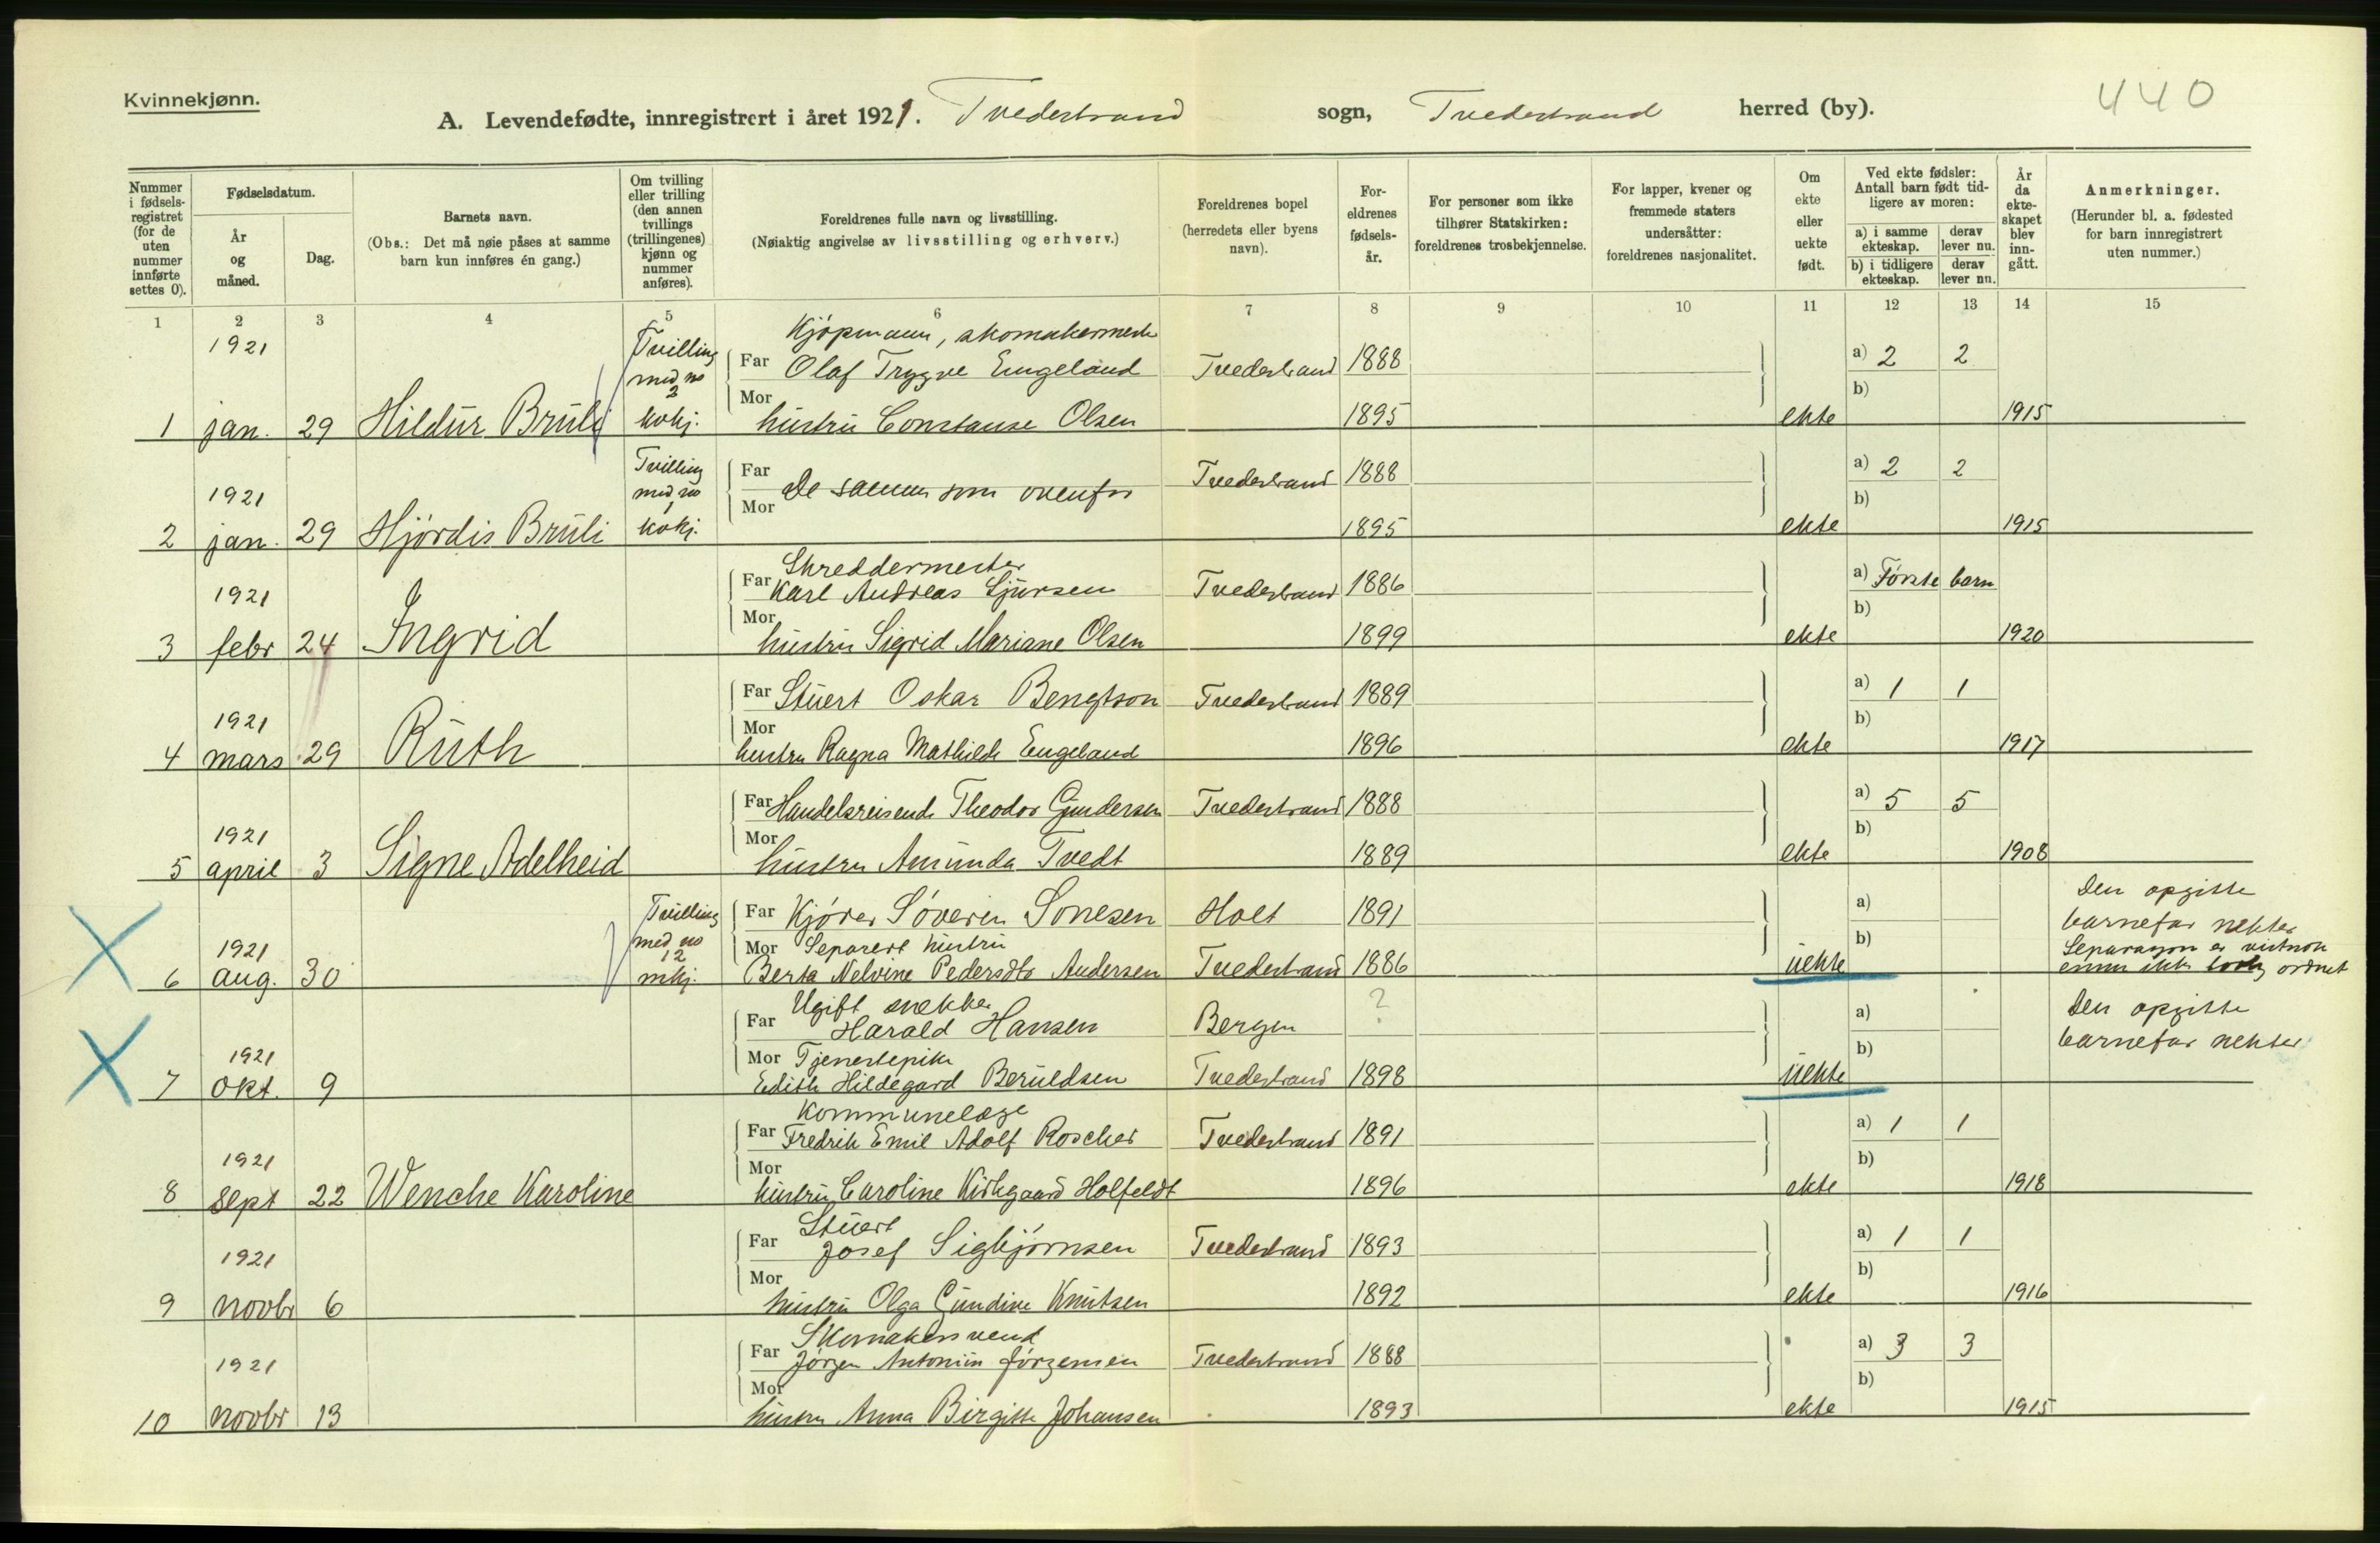 Kvinnekjønn.
440
A. Levendefødte, innregistrert i året 1921. Tvedestrand sogn, Tvedestrand herred (by).
Nummer i fødselsregistret (for de uten nummer innførte settes 0).
Fødselsdatum.
År og måned.
Dag.
Barnets navn.
(Obs.: Det må nøie påses at samme barn kun innføres én gang.)
Om tvilling eller trilling (den annen tvillings (trillingenes) kjønn og nummer anføres).
Foreldrenes fulle navn og livsstilling.
(Nøiaktig angivelse av livsstilling og erhverv.)
Foreldrenes bopel (herredets eller byens navn).
Foreldrenes fødselsår.
For personer som ikke tilhører Statskirken: foreldrenes trosbekjennelse.
For lapper, kvener og fremmede staters undersåtter: foreldrenes nasjonalitet.
Om ekte eller uekte født.
Ved ekte fødsler: Antall barn født tidligere av moren:
a) i samme ekteskap. derav lever nu.
b) i tidligere ekteskap. derav lever nu.
År da ekteskapet blev inngått.
Anmerkninger.
(Herunder bl. a. fødested for barn innregistrert uten nummer.)
1 2 3 4 5 6 7 8 9 10 11 12 13 14 15
1921 Tvilling med no 2 kvkj. Kjøpmann, skomakermester
Far Olaf Trygve Engeland Tvedestrand 1888 a) 2 2
b)
1 jan. 29 Hildur Bruli Mor hustru Constanse Olsen 1895 ekte 1915
1921 Tvilling med no 1 kvkj. Far De samme som ovenfor Tvedestrand 1888 a) 2 2
b)
2 jan. 29 Hjørdis Bruli Mor 1895 ekte 1915
Skreddermester
1921 Far Karl Andreas Sjursen Tvedestrand 1886 a) Første barn
b)
3 febr 24 Ingrid Mor hustru Sigrid Mariane Olsen 1899 ekte 1920
1921 Far Stuert Oskar Bengtson Tvedestrand 1889 a) 1 1
b)
4 mars 29 Ruth Mor hustru Ragna Mathilde Engeland 1896 ekte 1917
1921 Far Handelsreisende Theodor Gundersen Tvedestrand 1888 a) 5 5
b)
5 april 3 Signe Adelheid Mor hustru Amunda Tvedt 1889 ekte 1908
1921 Tvilling med no 12 mkj. Far Kjører Søveren Sonesen Holt 1891 a) Den opgitte barnefar nekter
Mor Separert hustru b) Separasjon er vistnok
6 aug. 30 Berta Nelvine Pedersdtr Andersen Tvedestrand 1886 uekte ennu ikke ordnet
Ugift snekker
1921 Far Harald Hansen Bergen ? a) Den opgitte barnefar nekter
Mor Tjenestepike b)
7 okt. 9 Edith Hildegard Beruldsen Tvedestrand 1898 uekte
Kommunelæge
1921 Far Fredrik Emil Adolf Roscher Tvedestrand 1891 a) 1 1
b)
8 sept 22 Wenche Karoline Mor hustru Caroline Kirkgaard Holfeldt 1896 ekte 1918
Stuert
1921 Far Josef Sigbjørnsen Tvedestrand 1893 a) 1 1
b)
9 novbr 6 Mor hustru Olga Gundine Knutsen 1892 ekte 1916
Skomakersvend
1921 Far Jørgen Antonius Jørgensen Tvedestrand 1888 a) 3 3
b)
10 novbr 13 Mor hustru Anna Birgitte Johansen 1893 ekte 1915